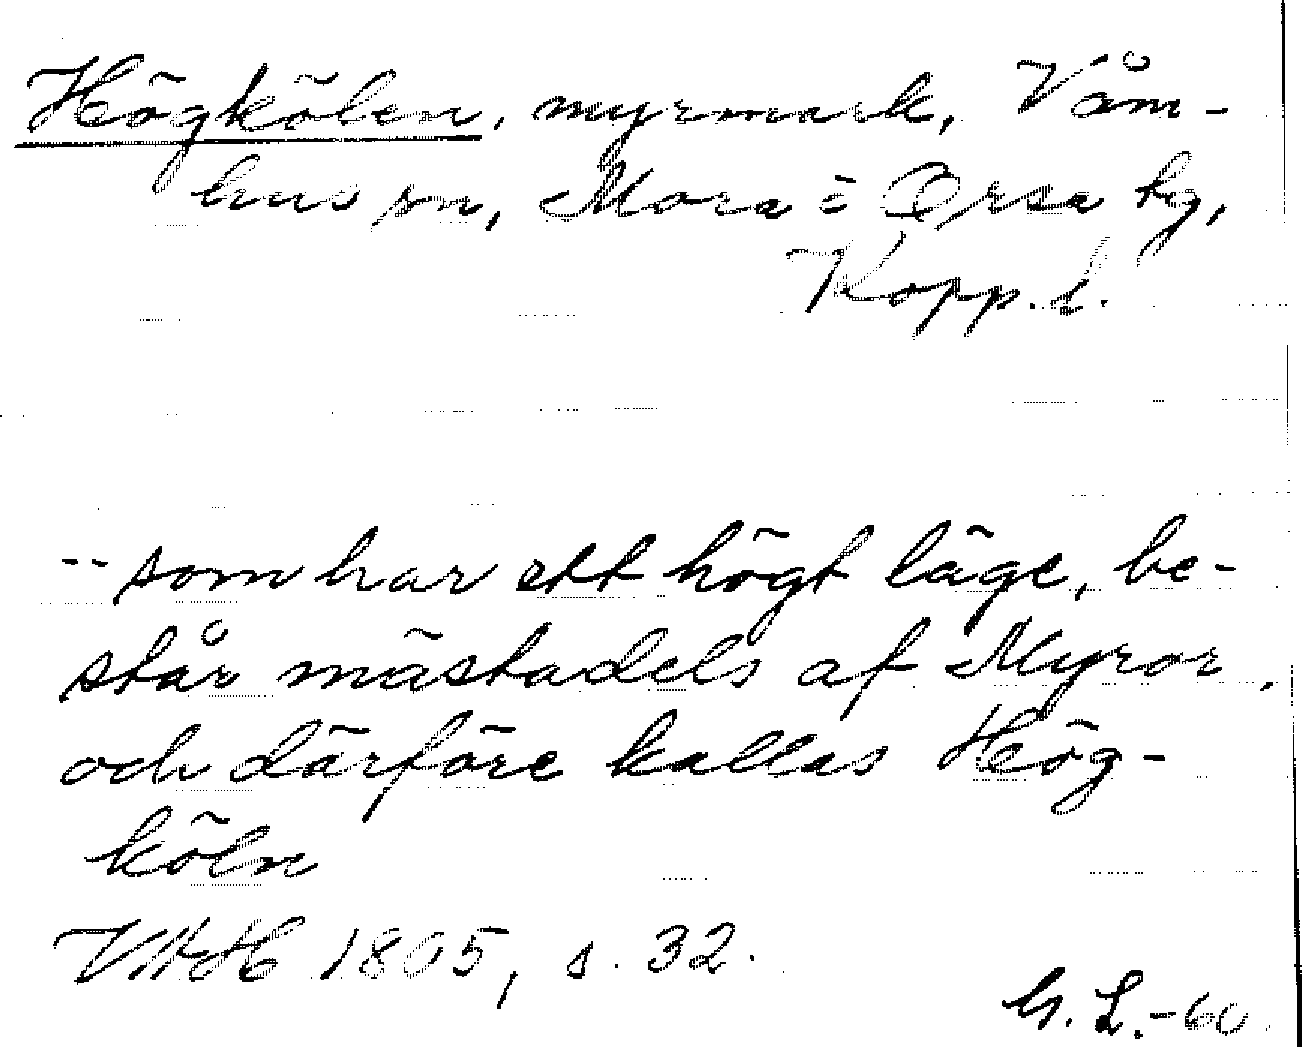 Högkölen, myrmark, Våm-
hus sn, Mora o Orsa tg,
Kopp. l.
-- som har ett högt läge, be-
står mästadels af Myror,
och därföre kallas Hög-
köln
1805, s. 32.
G. L. -60.